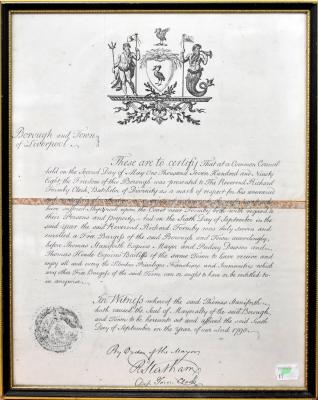 Borough and Town
of Leverpool
These are to certify That at a Common Council
held on the Second Day of May One Thousand Seven Hundred and Ninety
Eight the Freedom of this Borough was presented to The Reverend Richard
Formby Clerk, Batchelor of as a mark of respect for his
have suffered Shipwreck upon the Coast near Formby both with regard to
their Persons and property, and on the Sixth Day of September in the
said Year the said Reverend Richard Formby was duly sworn and
enrolled a Free Burgess of the said Borough and Town accordingly,
before Thomas Staniforth Esquire Mayor and Pudsey Dawson and
Thomas Hinde Esquires Bailiffs of the same Town to have receive and
enjoy all and every the Liberties Privileges Franchises and Immunities which
any other Free Burgess of the said Town can or ought to have or be entitled to
in anywise.
In Witness whereof the said Thomas Staniforth
hath caused the Seal of Mayoralty of the said Borough
and Town to be hereunto set and affixed the said Sixth
Day of September in the Year of our Lord 1798.
By Order of the Mayor
R Statham
Dep Town Clerk